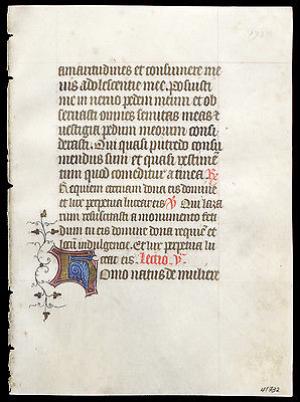 amaritudines et consumere me
vis adolescentie mee. Posuisti
me in nervo pedem meum et ob
servasti omnes semitas meas et
vestigia pedum meorum consi
derasti. Qui quasi putredo consu
mendus sum et quasi vestimen
tum quod comeditur a tinea. R
Requiem eternam dona eis domine
et lux perpetua luceat eis. V Qui laza
rum resuscitasti a monumento feti
dum tu eis domine dona requiem et
locum indulgencie. Et lux perpetua lu
ceat eis. Lectio v.
Homo natus de muliere
41732